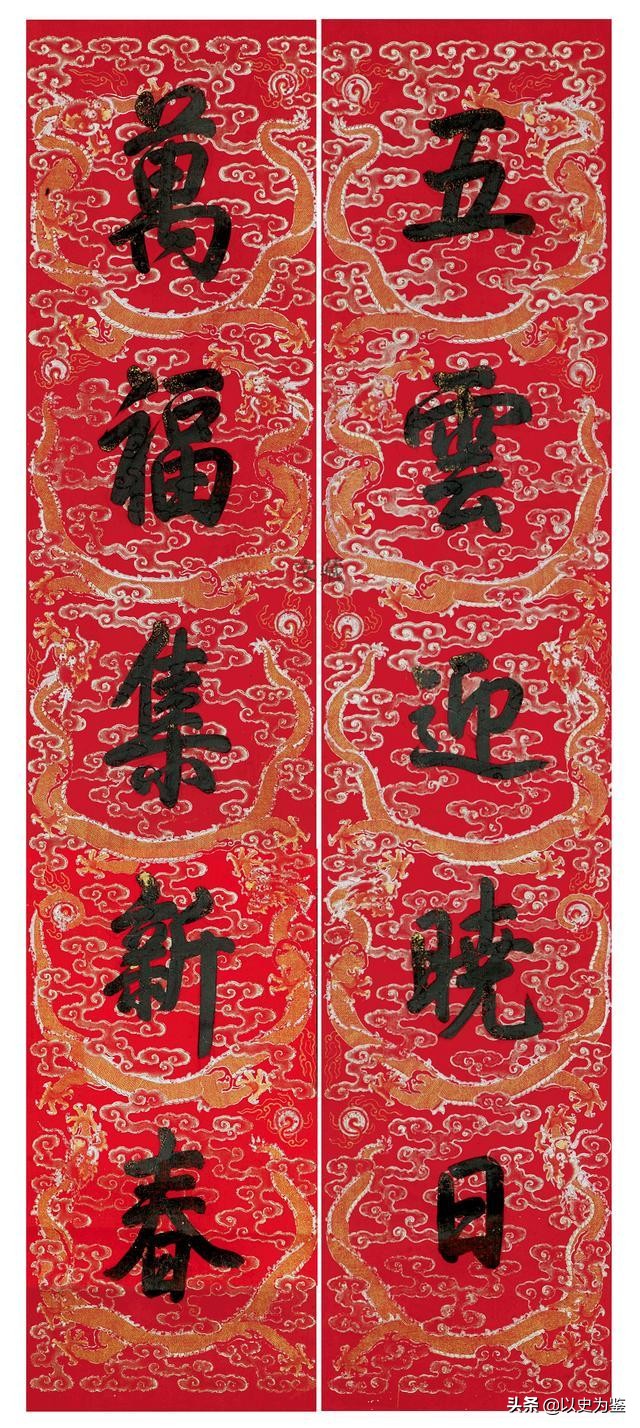 五雲迎曉日
萬福集新春
头条 @以史为鉴